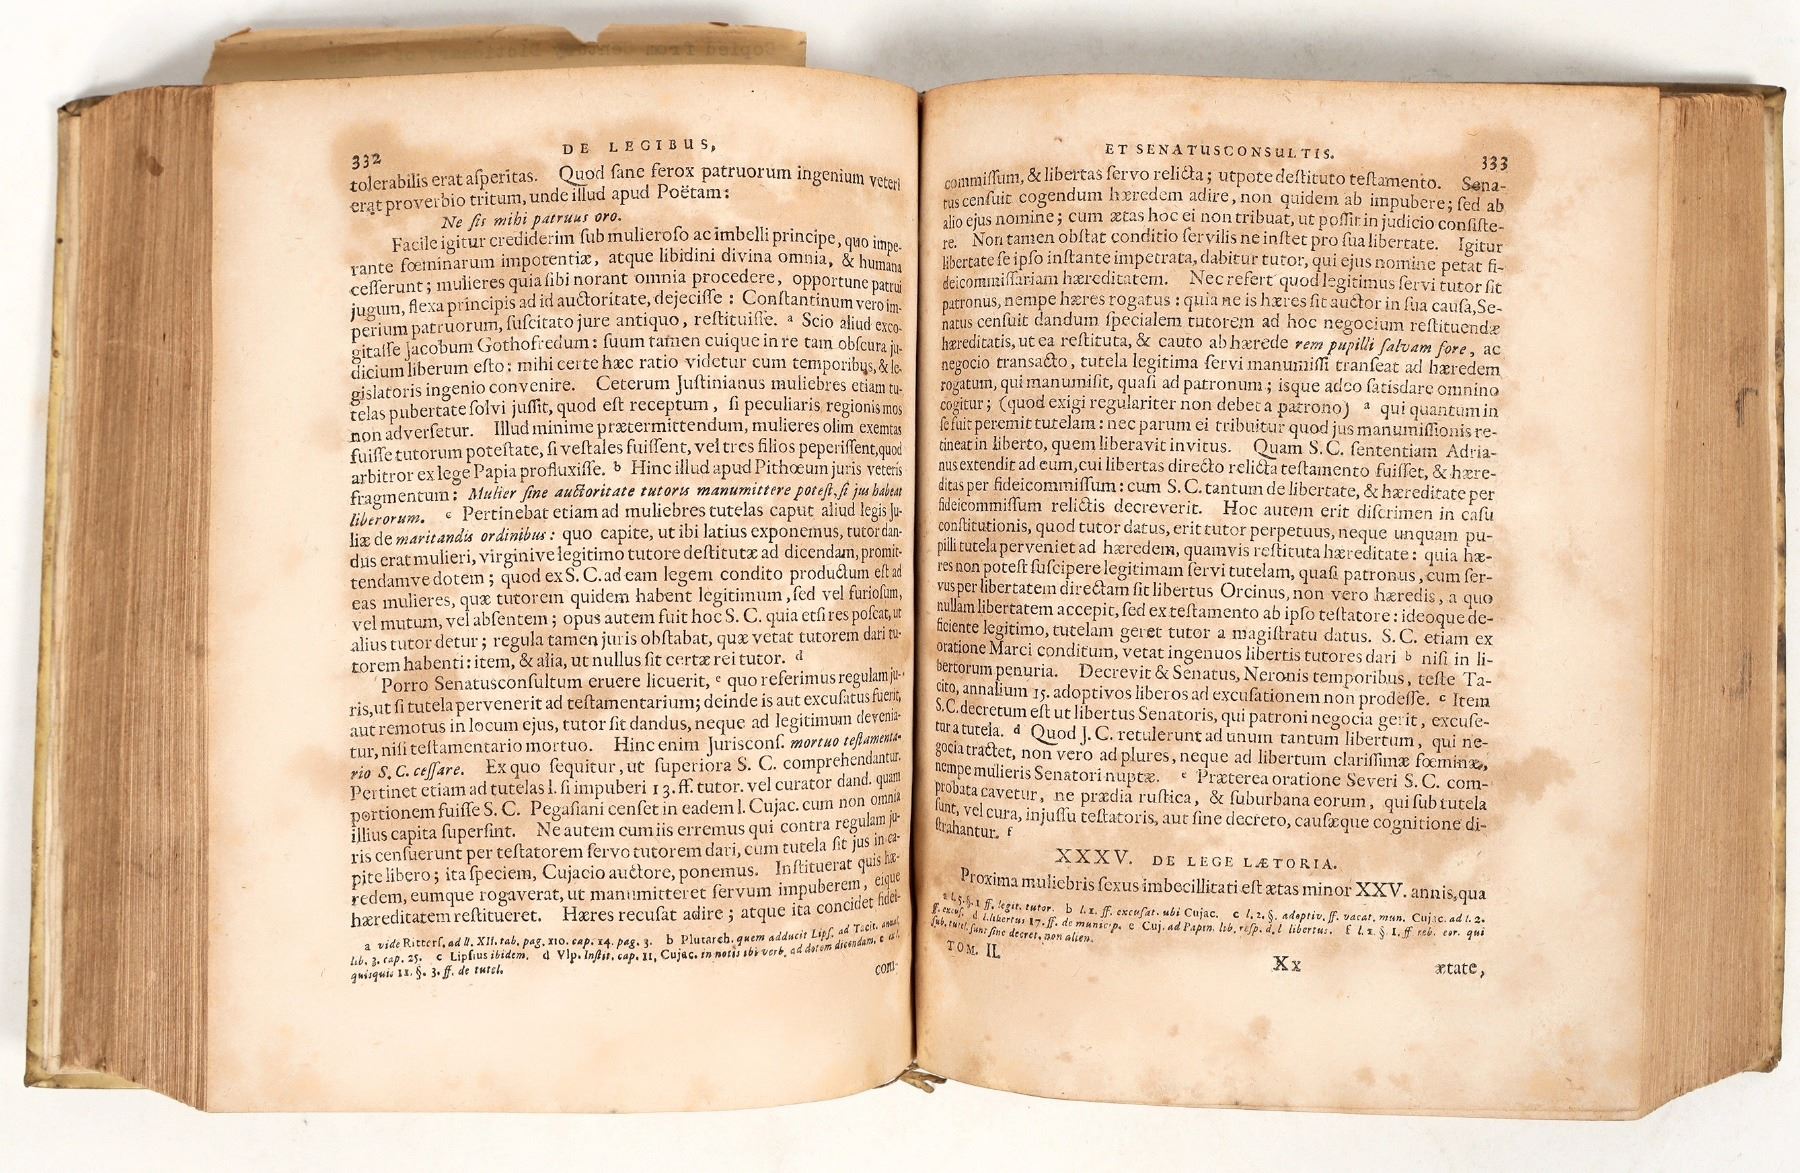 332
DE LEGIBUS,
tolerabilis erat asperitas. Quod sane ferox patruorum ingenium veteri
erat proverbio tritum, unde illud apud Poëtam:
Ne sis mihi patruus oro.
Facile igitur crediderim sub mulieroso ac imbelli principe, quo impe-
rante fœminarum impotentiæ, atque libidini divina omnia, & humana
cesserunt; mulieres quia sibi norant omnia procedere, opportune patrui
jugum, flexa principis ad id auctoritate, dejecisse: Constantinum vero im-
perium patruorum, suscitato jure antiquo, restituisse. a Scio aliud exco-
gitasse Jacobum Gothofredum: suum tamen cuique in re tam obscura ju-
dicium liberum esto: mihi certe hæc ratio videtur cum temporibus, & le-
gislatoris ingenio convenire. Ceterum Justinianus muliebres etiam tu-
telas pubertate solvi jussit, quod est receptum, si peculiaris regionis mos
non adversetur. Illud minime prætermittendum, mulieres olim exemtas
fuisse tutorum potestate, si vestales fuissent, vel tres filios peperissent, quod
arbitror ex lege Papia profluxisse. b Hinc illud apud Pithœum juris veteris
fragmentum: Mulier sine auctoritate tutoris manumittere potest, si jus habeat
liberorum. c Pertinebat etiam ad muliebres tutelas caput aliud legis Ju-
liæ de maritandis ordinibus: quo capite, ut ibi latius exponemus, tutor dan-
dus erat mulieri, virginive legitimo tutore destitutæ ad dicendam, promit-
tendamve dotem; quod ex S. C. ad eam legem condito productum est ad
eas mulieres, quæ tutorem quidem habent legitimum, sed vel furiosum,
vel mutum, vel absentem; opus autem fuit hoc S. C. quia etsi res poscat, ut
alius tutor detur; regula tamen juris obstabat, quæ vetat tutorem dari tu-
torem habenti: item, & alia, ut nullus sit certæ rei tutor. d
Porro Senatusconsultum eruere licuerit, e quo referimus regulam ju-
ris, ut si tutela pervenerit ad testamentarium; deinde is aut excusatus fuerit,
aut remotus in locum ejus, tutor sit dandus, neque ad legitimum devenia-
tur, nisi testamentario mortuo. Hinc enim Jurisconf. mortuo testamenta-
rio S. C. cessare. Ex quo sequitur, ut superiora S. C. comprehendantur.
Pertinet etiam ad tutelas l. si impuberi 13. ff. tutor. vel curator dand. quam
portionem fuisse S. C. Pegasiani censet in eadem l. Cujac. cum non omnia
illius capita supersint. Ne autem cum iis erremus qui contra regulam ju-
ris censuerunt per testatorem servo tutorem dari, cum tutela sit jus in ca-
pite libero; ita speciem, Cujacio auctore, ponemus. Instituerat quis hæ-
redem, eumque rogaverat, ut manumitteret servum impuberem, eique
hæreditatem restitueret. Hæres recusat adire; atque ita concidet fidei-
a vide Ritters. ad ll. XII. tab. pag. 110. cap. 14. pag. 3. b Plutarch. quem adducit Lips. ad Tacit. annal.
lib. 3. cap. 25. c Lipsius ibidem. d Vlp. Instit. cap. 11, Cujac. in notis ibi verb. ad dotem dicendam. e
quisquis 11. §. 3. ff. de tutel.
com-
ET SENATUSCONSULTIS.
333
commissum, & libertas servo relicta; utpote destituto testamento. Sena-
tus censuit cogendum hæredem adire, non quidem ab impubere; sed ab
alio ejus nomine; cum ætas hoc ei non tribuat, ut possit in judicio consiste-
re. Non tamen obstat conditio servilis ne instet pro sua libertate. Igitur
libertate se ipso instante impetrata, dabitur tutor, qui ejus nomine petat fi-
deicommissariam hæreditatem. Nec refert quod legitimus servi tutor sit
patronus, nempe hæres rogatus: quia ne is hæres sit auctor in sua causa, Se-
natus censuit dandum specialem tutorem ad hoc negocium restituendæ
hæreditatis, ut ea restituta, & cauto ab hærede rem pupilli salvam fore, ac
negocio transacto, tutela legitima servi manumissi transeat ad hæredem
rogatum, qui manumisit, quasi ad patronum; isque adeo satisdare omnino
cogitur; (quod exigi regulariter non debet a patrono) a qui quantum in
se fuit peremit tutelam: nec parum ei tribuitur quod jus manumissionis re-
tineat in liberto, quem liberavit invitus. Quam S. C. sententiam Adria-
nus extendit ad eum, cui libertas directo relicta testamento fuisset, & hære-
ditas per fideicommissum: cum S. C. tantum de libertate, & hæreditate per
fideicommissum relictis decreverit. Hoc autem erit discrimen in casu
constitutionis, quod tutor datus, erit tutor perpetuus, neque unquam pu-
pilli tutela perveniet ad hæredem, quamvis restituta hæreditate: quia hæ-
res non potest suscipere legitimam servi tutelam, quasi patronus, cum ser-
vus per libertatem directam sit libertus Orcinus, non vero hæredis, a quo
nullam libertatem accepit, sed ex testamento ab ipso testatore: ideoque de-
ficiente legitimo, tutelam geret tutor a magistratu datus. S. C. etiam ex
oratione Marci conditum, vetat ingenuos libertis tutores dari b nisi in li-
bertorum penuria. Decrevit & Senatus, Neronis temporibus, teste Ta-
cito, annalium 15. adoptivos liberos ad excusationem non prodesse. c Item
S. C. decretum est ut libertus Senatoris, qui patroni negocia gerit, excuse-
tur a tutela. d Quod J. C. retulerunt ad unum tantum libertum, qui ne-
gocia tractet, non vero ad plures, neque ad libertum clarissimæ fœminæ,
nempe mulieris Senatori nuptæ. e Præterea oratione Severi S. C. com-
probata cavetur, ne prædia rustica, & suburbana eorum, qui sub tutela
sunt, vel cura, injussu testatoris, aut sine decreto, causæque cognitione di-
strahantur. f
XXXV. DE LEGE LÆTORIA.
Proxima muliebris sexus imbecillitati est ætas minor XXV. annis, qua
a l. 5. §. 1 ff. legit. tutor. b l. 1. ff. excusat. ubi Cujac. c l. 2. §. adoptiv. ff. vacat. mun. Cujac. ad l. 2.
ff. excus. d l. libertus 17. ff. de municip. e Cuj. ad Papin. lib. resp. d. l libertus. f l. 1. §. 1. ff reb. eor. qui
sub. tutel. sunt sine decret. non alien.
TOM. II.
Xx
ætate,